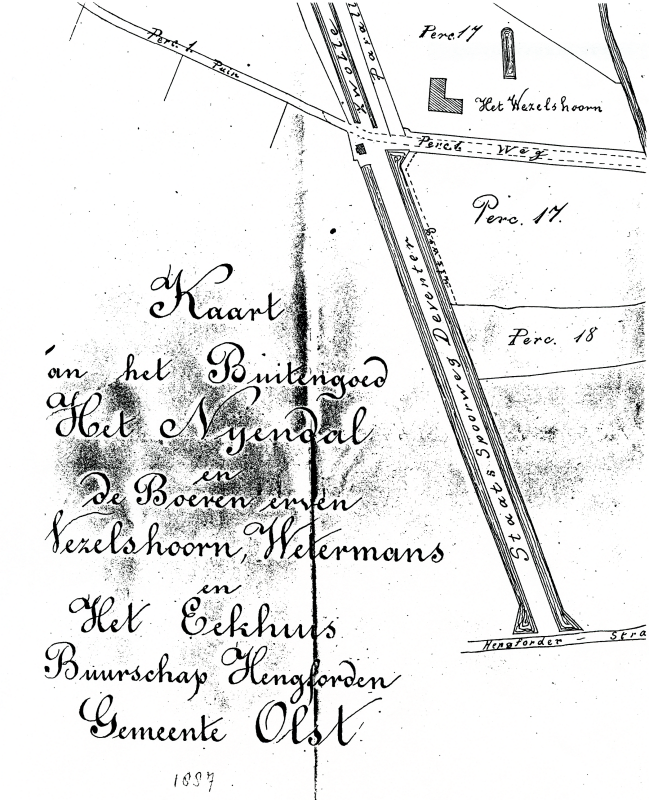 Perc. 1.
Puin
Zwolle
Para
Perc. 17
Het Wezelshoorn
Perc. 6
Weg
Perc. 17.
Perc. 18
Staats Spoorweg Deventer
Hengforder - Stra
Kaart
an het Buitengoed
Het Nyendal
en
de Boeren erven
Vezelshoorn, Wetermans
en
Het Eekhuis
Buurschap Hengforden
Gemeente Olst
1887